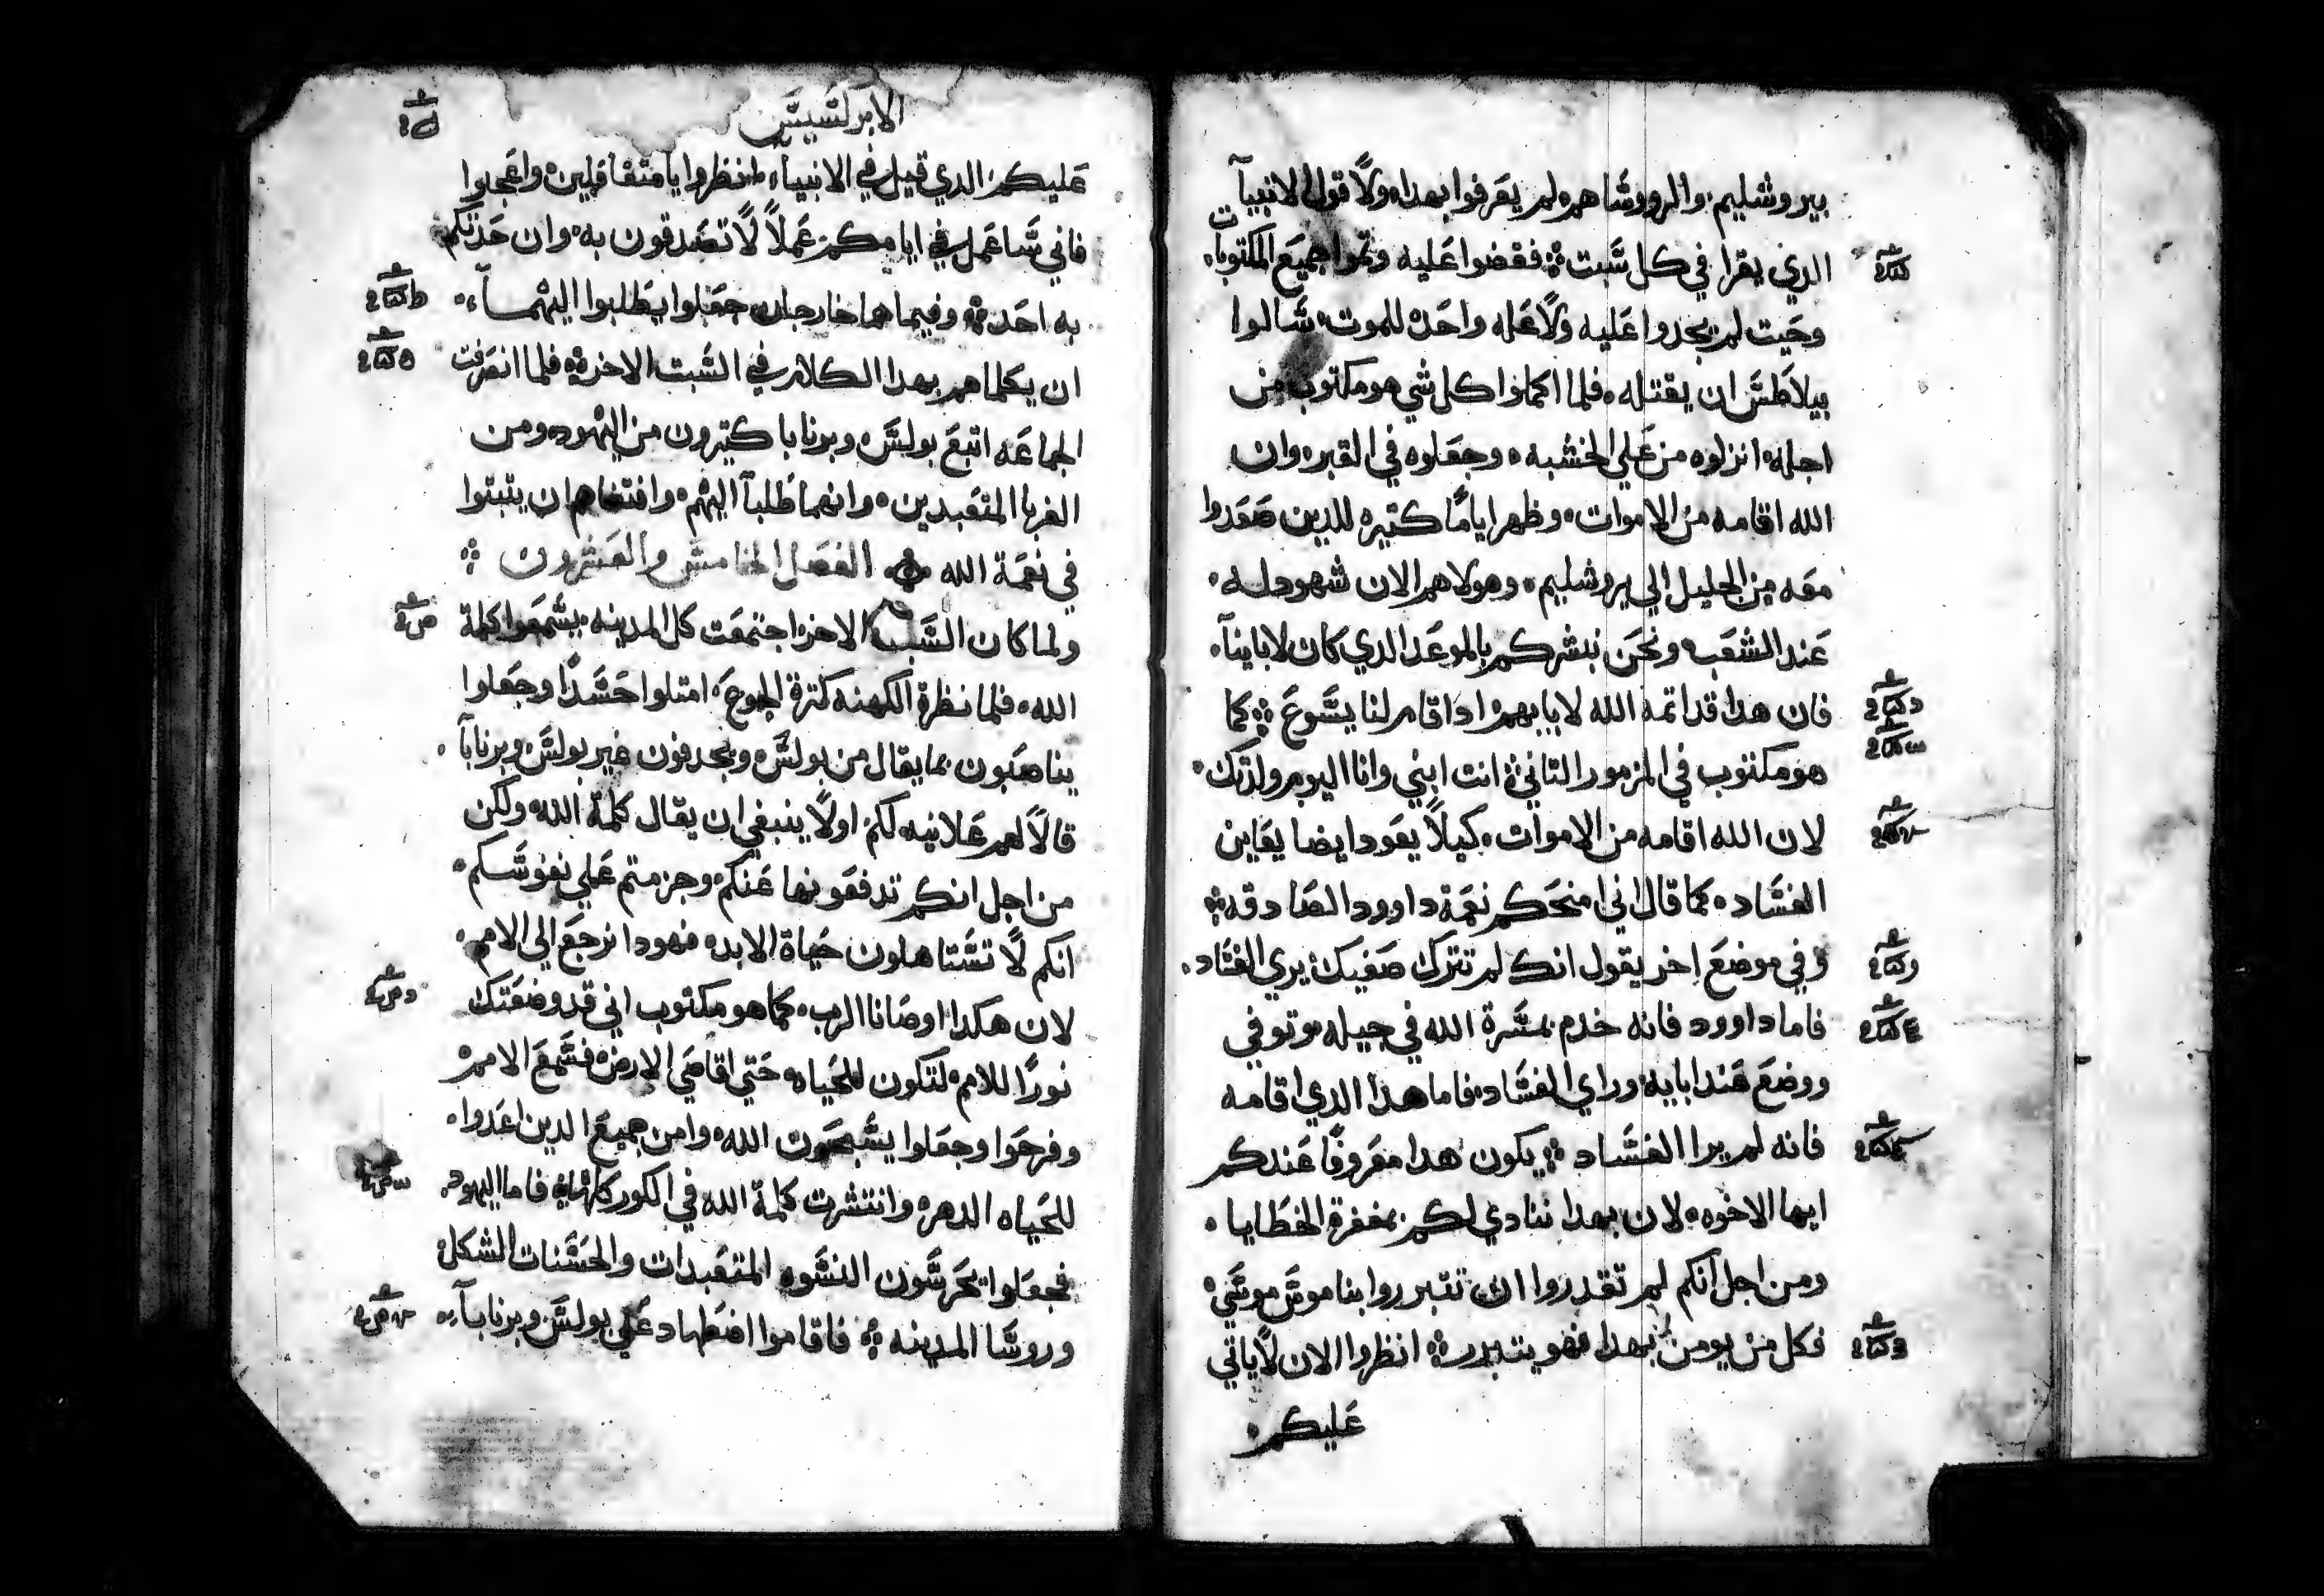 بيروشليم. والرووسَا هم لم يعَرفوا بهدا. ولاً قول الانبيآ
الذي يقرا في كل سَّبت ܀ فقضوا عَليه وتموا جميعَ المكتوبات
وحَيت لم يجدوا عَليه ولاً عَله واحَدهْ للموت، سَّالوا
بيلاطَسَ ان يقتله. فلما اكملوا كل شي هو مكتوب من
اجله. انزلوه من عَلي الخشبه. وجعَلوه في القبر. وان
الله اقامه من الاموات. وظهر اياماً كتيره للدين صَعَدوا
معَه من الجليل الي يروشليم. وهولا هم الان شهود له.
عَند الشعَب. ونحَن نبشركم بالموعَد الدي كان لاباينآ.
فان هدا قد اتمه الله لابايهم. ادا اقام لنا يسَّوعَ ܀ كما
هو مكتوب في المزمور التاني ܀ انت ابني وانا اليوم ولدتك.
لان الله اقامه من الاموات. كيلاً يعَود ايضا يعَاين
الفسَّاد. كما قال اني امنحَكم نعَمة داوود الصَادقه ܀
وفي موضعَ اخر يقول انك لم تترك صَفيك يري الفسَّاد.
فاما داوود فانه خدم بمسَّرة الله في جيله. وتوفي
ووضعَ عَند ابايه. وراي الفسَّاد. فاما هدا الدي اقامه
فانه لم يرا الفسَّاد ܀ يكون هدا معَروفاً عَندكم
ايها الاخوه. لان بهدا ننادي لكم بمغفرة الخطَايا.
ومن اجل انكم لم تقدروا ان تتبرروا بناموسَ موسَّي.
فكل من يومن بهدا فهو يتبرر ܀ انظروا الان لاً ياتي
عَليكم
الابركسَّيسَّ
عَليكم. الدي قيل في الانبياء. انظروا يا متغافلين. واعَجبوا
فاني سَّاعَمل في ايامكم عَملاً لاً تصَدقون به. وان حَدتكم
به احَد ܀ وفيما هما خارجان جعَلوا يطَلبوا اليهمآ.
ان يكلماهم بهدا الكلام في السَّبت الاخر ܀ فلما انصَرفت
الجماعَه اتبعَ بولسَّ وبرنابا كتيرون من اليهود. ومن
الغربا المتعَبدين. وانهما طَلبآ اليهم. واقنعَاهم ان يتبتوا
في نعَمة الله ܀ الفصَل الخامسَ والعَشرون ܀
ولما كان السَّبت الاخر. اجتمعَت كل المدينه. يسَّمعَوا كلمة
الله. فلما نظرة الكهنه كترة الجموعَ. امتلوا حَسَّداً وجعَلوا
يناصَبون. بما يقال من بولسَّ. ويجدفون غير بولسَّ وبرنابآ.
قالاً لهم عَلانيه. لكم اولاً ينبغي ان يقال كلمة الله. ولكن
من اجل انكم تدفعَونها عَنكم. وجزمتم عَلي نفوسَّكم.
انكم لاً تسَّتاهلون حَياة الابد. فهودا نرجعَ الي الامم.
لان هكدا اوصَانا الرب. كما هو مكتوب اني قد وضعَتك
نوراً للامم. لتكون للحَياه. حَتي اقاصَي الارض. فسَّمعَ الامم
وفرحَوا وجعَلوا يسَّبحَون الله. وامن جميعَ الدين اعَدوا.
للحَياه الدهره. وانتشرت كلمة الله في الكور كلها ܀ فاما اليهود.
فجعَلوا يحَرسَّون النسَّوه المتعَبدات والحَسَّنات الشكل
وروسَّا المدينه ܀ فاقاموا اضطَهاد عَلي بولسَّ وبرنابآ.